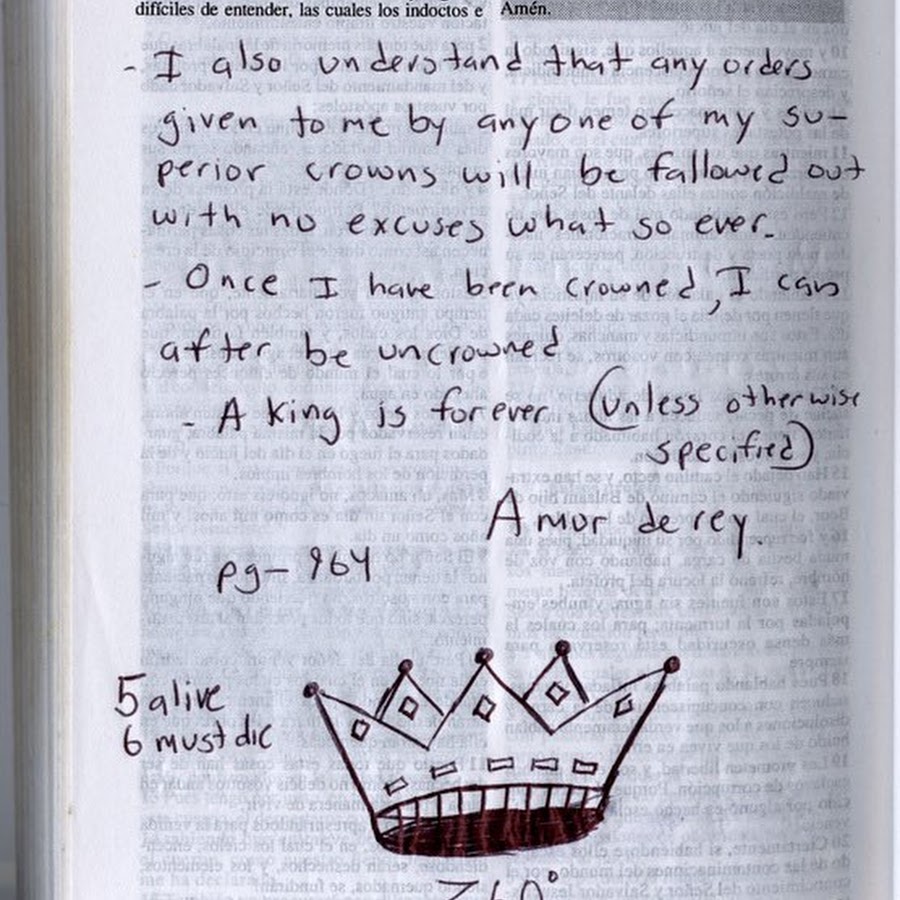 difíciles de entender, las cuales los indoctos e
Amén.
- I also understand that any orders
given to me by anyone of my su-
perior crowns will be fallowed out
with no excuses what so ever.
- Once I have been crowned, I can
after be uncrowned
- A king is forever (unless otherwise
specified)
Amor de rey.
pg- 964
5 alive
6 must die
360°